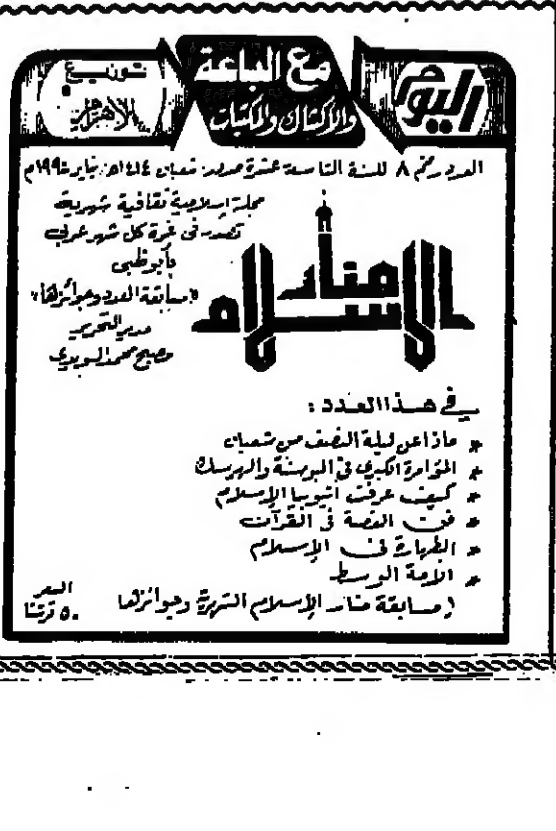 اليوم
مع الباعة
والأكشاك والمكتبات
توزيع
الأهرام
العدد رقم ٨ للسنة التاسعة عشرة صدر: شعبان ١٤١٤هـ: يناير ١٩٩٤م
مجلة إسلامية ثقافية شهرية
تصدر في غرة كل شهر عربي
بأبوظبي
«مسابقة العدد وجوائزها»
مدير التحرير
منار الإسلام
في هذا العدد:
* ماذا عن ليلة النصف من شعبان
* المؤامرة الكبرى في البوسنة والهرسك
* كيف عرفت اثيوبيا الإسلام
* فن القصة في القرآن
* الطهارة في الإسلام
* الأمة الوسط
(مسابقة منار الإسلام الشهرية وجوائزها
السعر
٥٠ قرشا